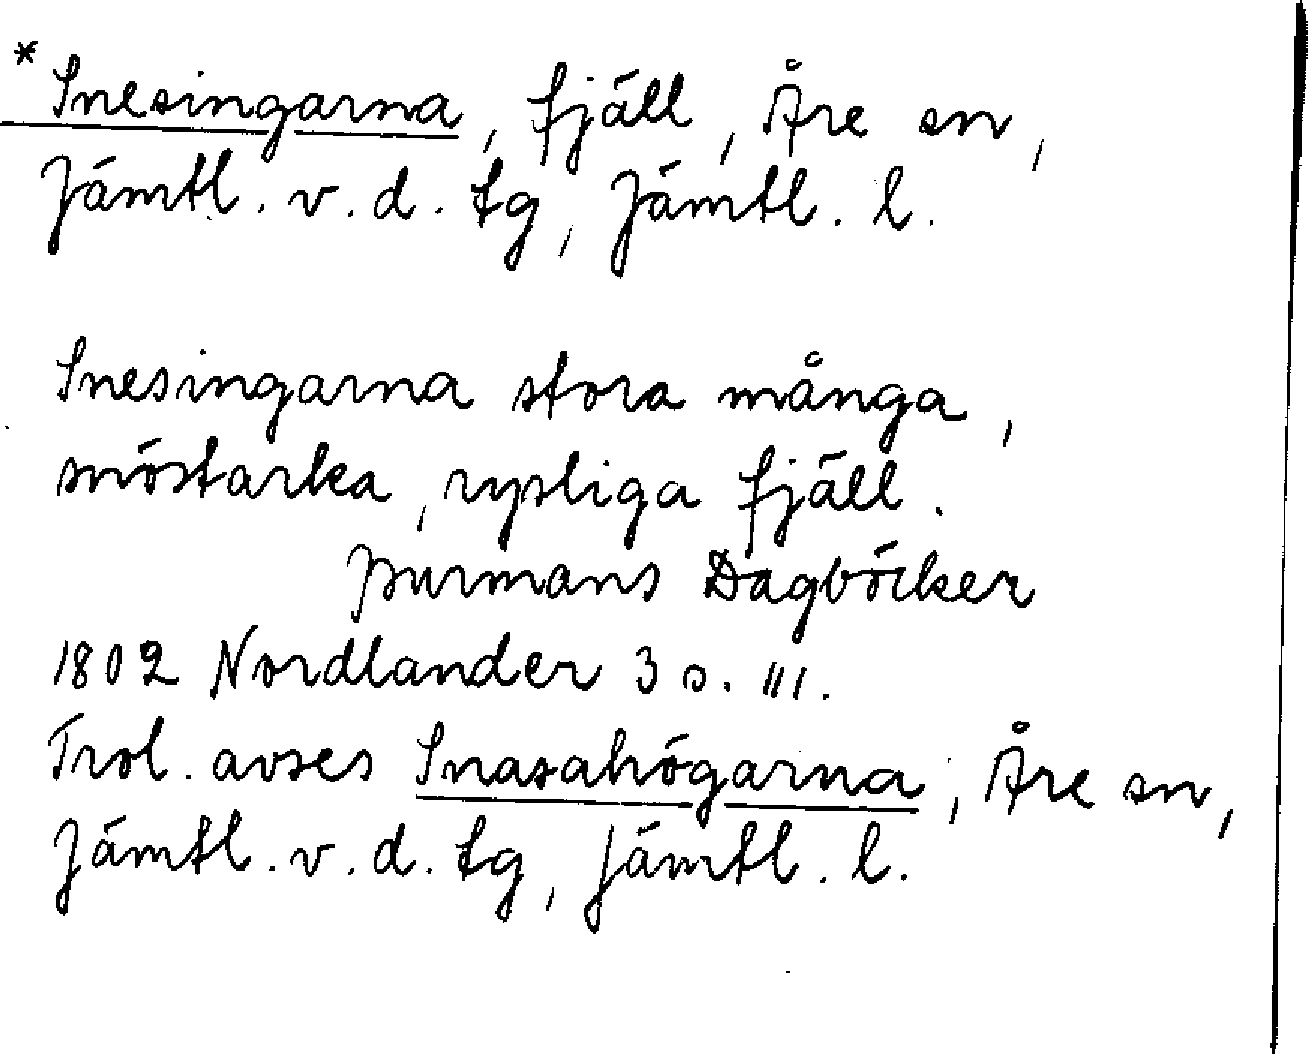 *Snesingarna, fjäll, Åre sn,
Jämtl. v. d. tg, Jämtl. l.
Snesingarna stora många,
snöstarka, rysliga fjäll.
Burmans Dagböcker
1802 Nordlander 3 s. 111.
Trol. avses Snasahögarna, Åre sn,
Jämtl. v. d. tg, Jämtl. l.